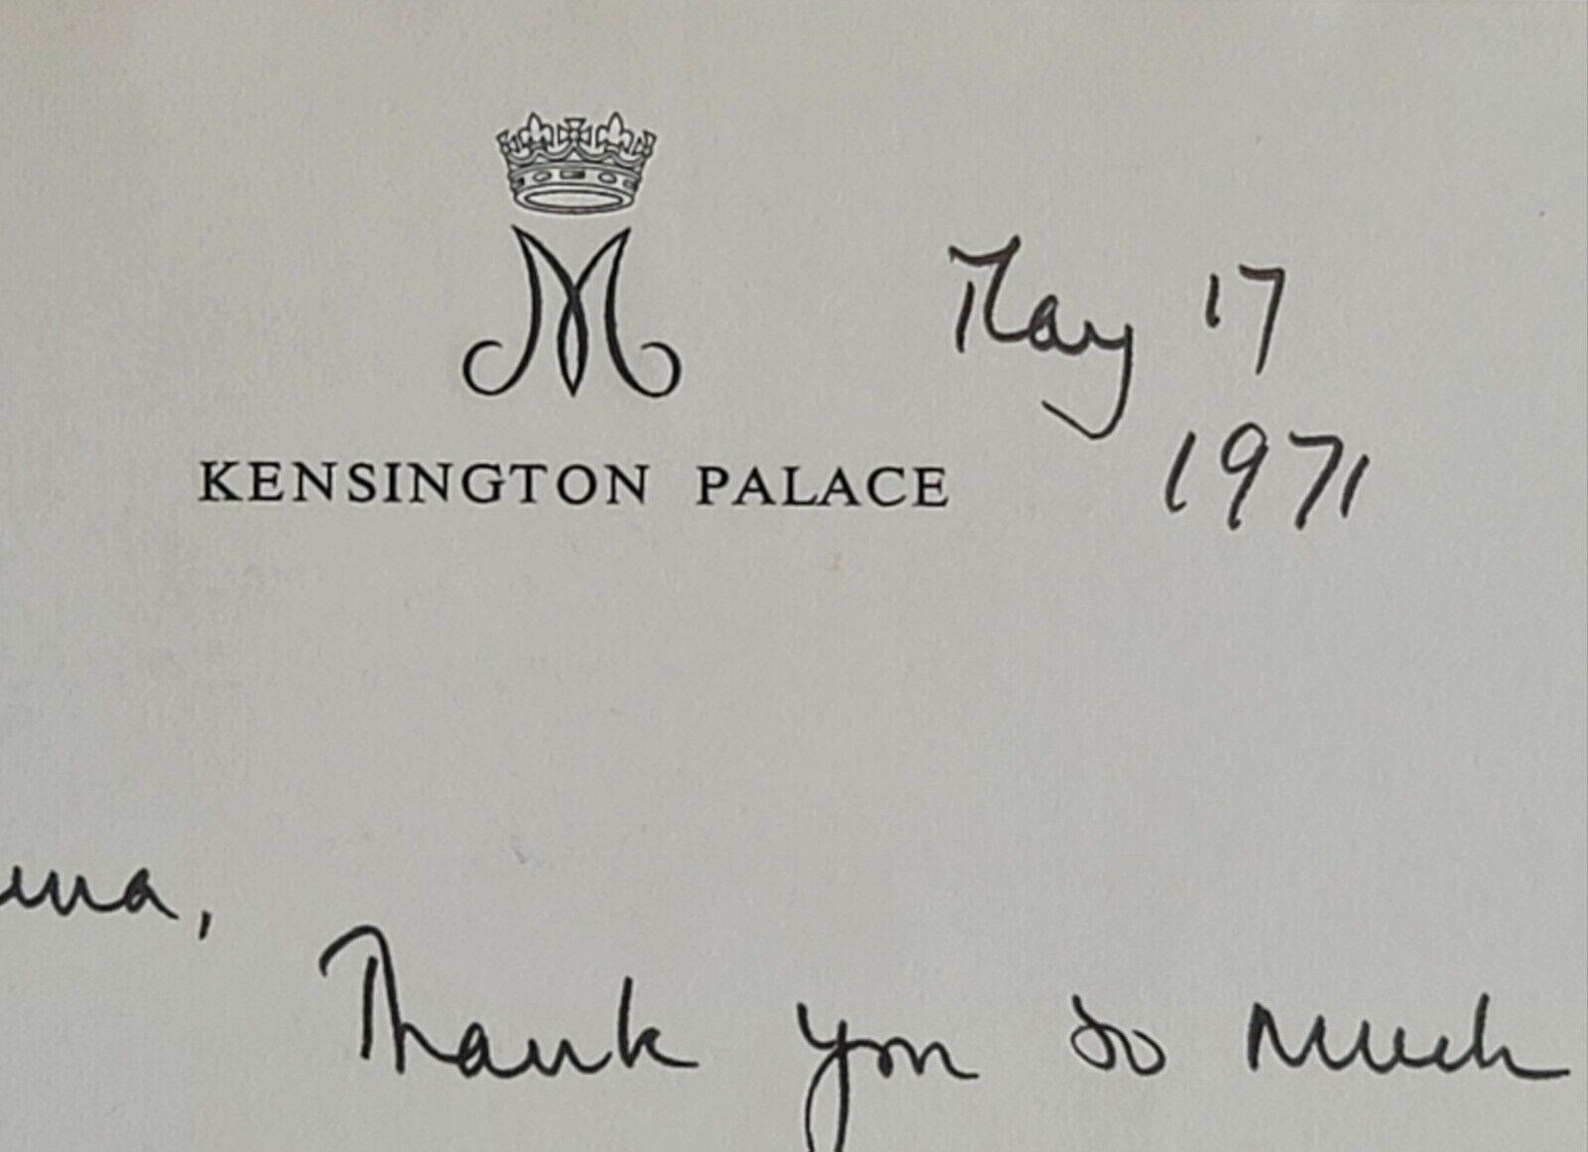 M
May 17
KENSINGTON PALACE
1971
Thank you so much